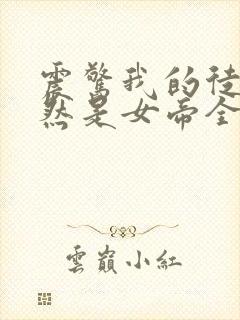 震驚我的徒
然是女帝全
雲巔小紅